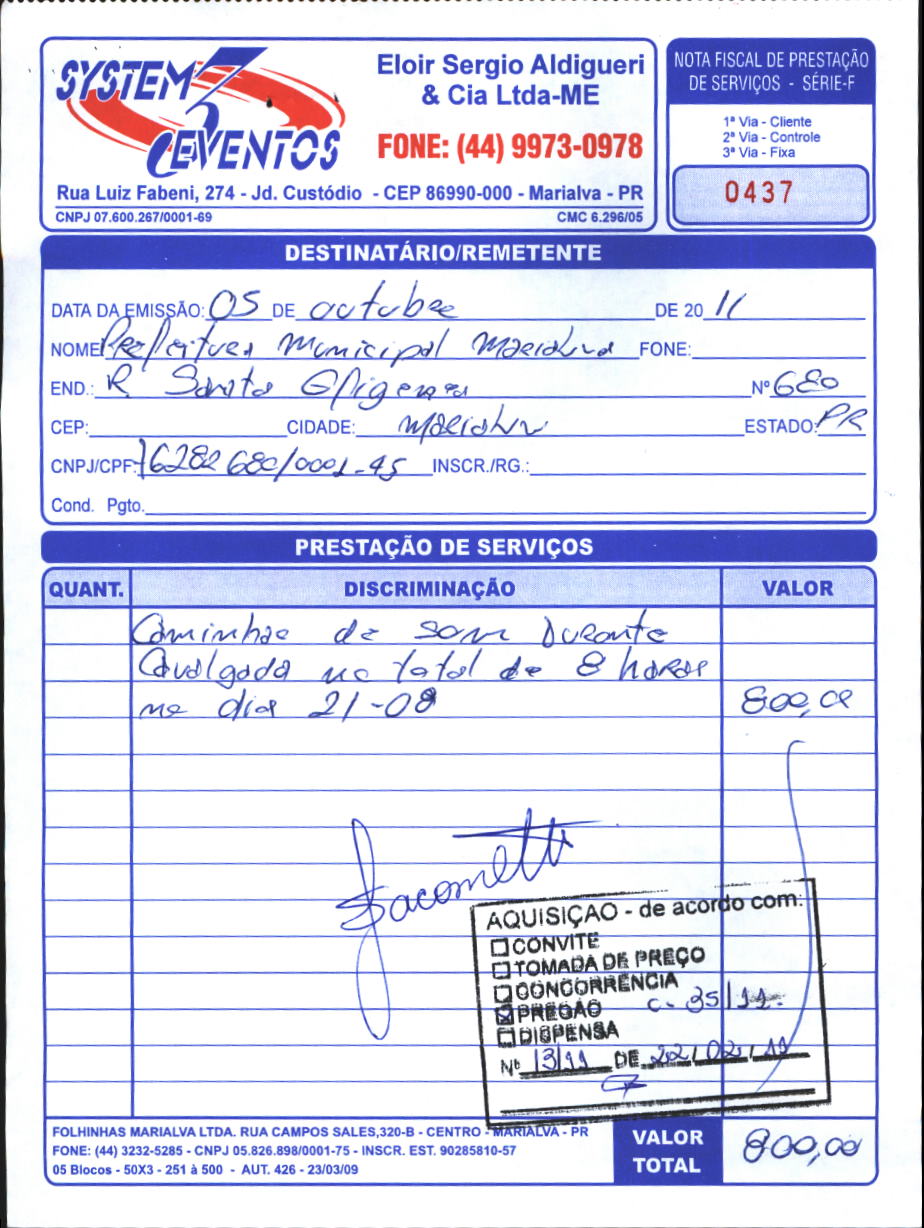 SYSTEM 3 EVENTOS
Eloir Sergio Aldigueri
& Cia Ltda-ME
FONE: (44) 9973-0978
Rua Luiz Fabeni, 274 - Jd. Custódio - CEP 86990-000 - Marialva - PR
CNPJ 07.600.267/0001-69 CMC 6.296/05
NOTA FISCAL DE PRESTAÇÃO
DE SERVIÇOS - SÉRIE-F
1ª Via - Cliente
2ª Via - Controle
3ª Via - Fixa
0437
DESTINATÁRIO/REMETENTE
DATA DA EMISSÃO: 05 DE outubro DE 20 11
NOME Prefeitura Municipal Marialva FONE:
END.: R Santa Efigenia Nº 680
CEP: CIDADE: Marialva ESTADO: PR
CNPJ/CPF: 76282680/0001-45 INSCR./RG.:
Cond. Pgto.
PRESTAÇÃO DE SERVIÇOS
QUANT. DISCRIMINAÇÃO VALOR
Caminhao de som Durante
Cavalgada no total de 8 horas
no dia 21-08 800,00
Jacometti
AQUISIÇAO - de acordo com:
CONVITE
TOMADA DE PREÇO
CONCORRENCIA
PREGÃO C. 35/11
DISPENSA
Nº 13/11 DE 22/02/11
FOLHINHAS MARIALVA LTDA. RUA CAMPOS SALES,320-B - CENTRO - MARIALVA - PR
FONE: (44) 3232-5285 - CNPJ 05.826.898/0001-75 - INSCR. EST. 90285810-57
05 Blocos - 50X3 - 251 à 500 - AUT. 426 - 23/03/09
VALOR
TOTAL 800,00